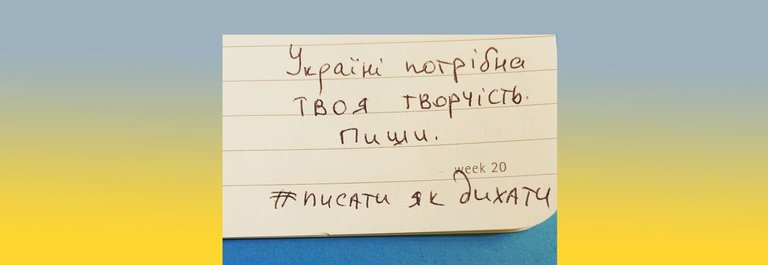 Україні потрібна
твоя творчість.
Пиши.
week 20
#писати як дихати